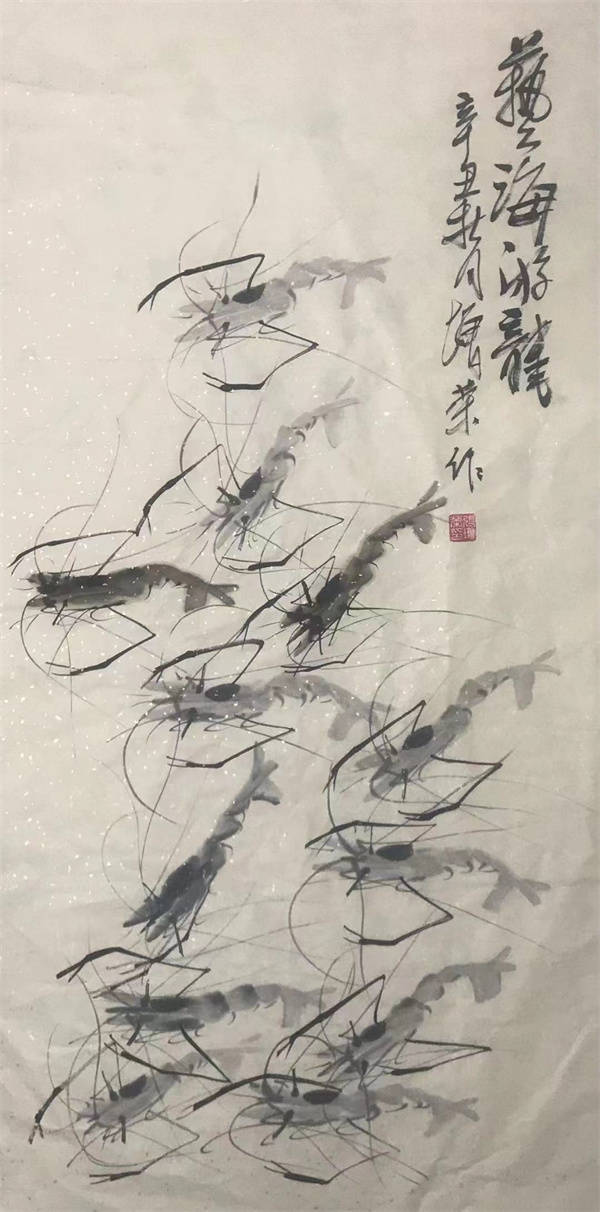 藝海游龍
辛丑秋月增荣作